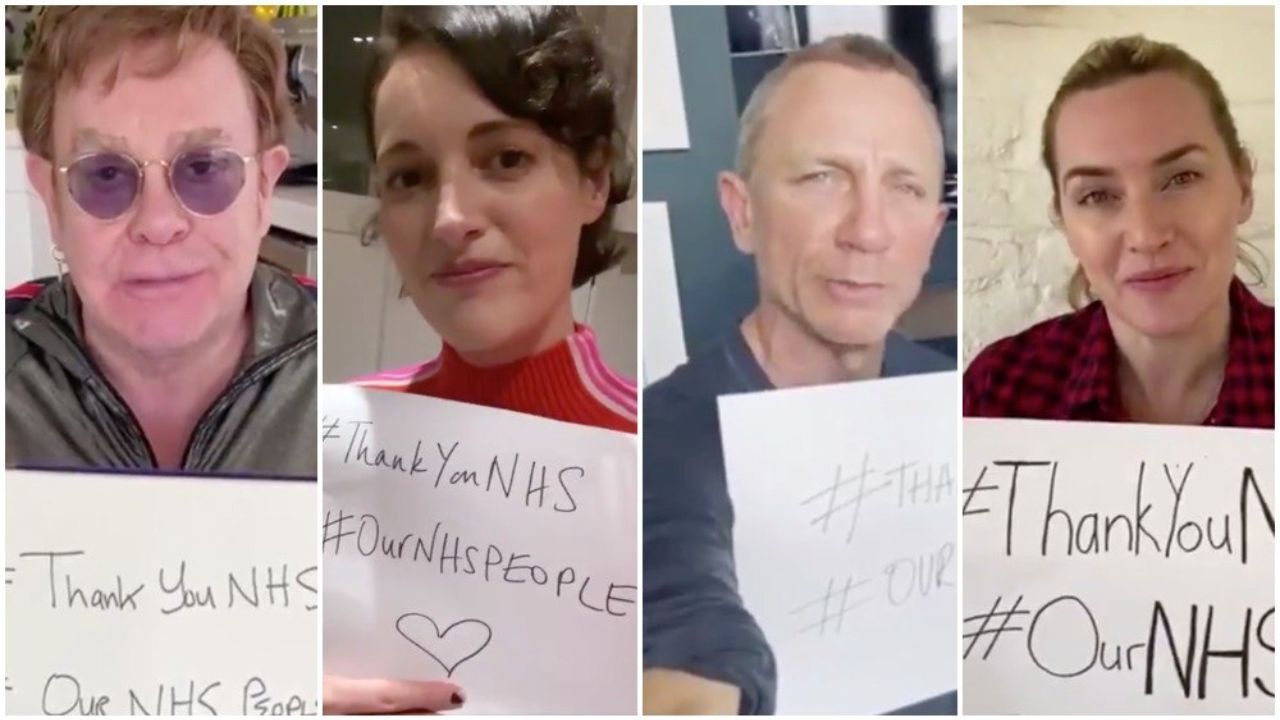 # Thank You NHS
# OUR NHS PEOPL
#ThankYouNHS
#OurNHSPEOPLE
#THA
#OUR
#ThankYouN
#OurNHS